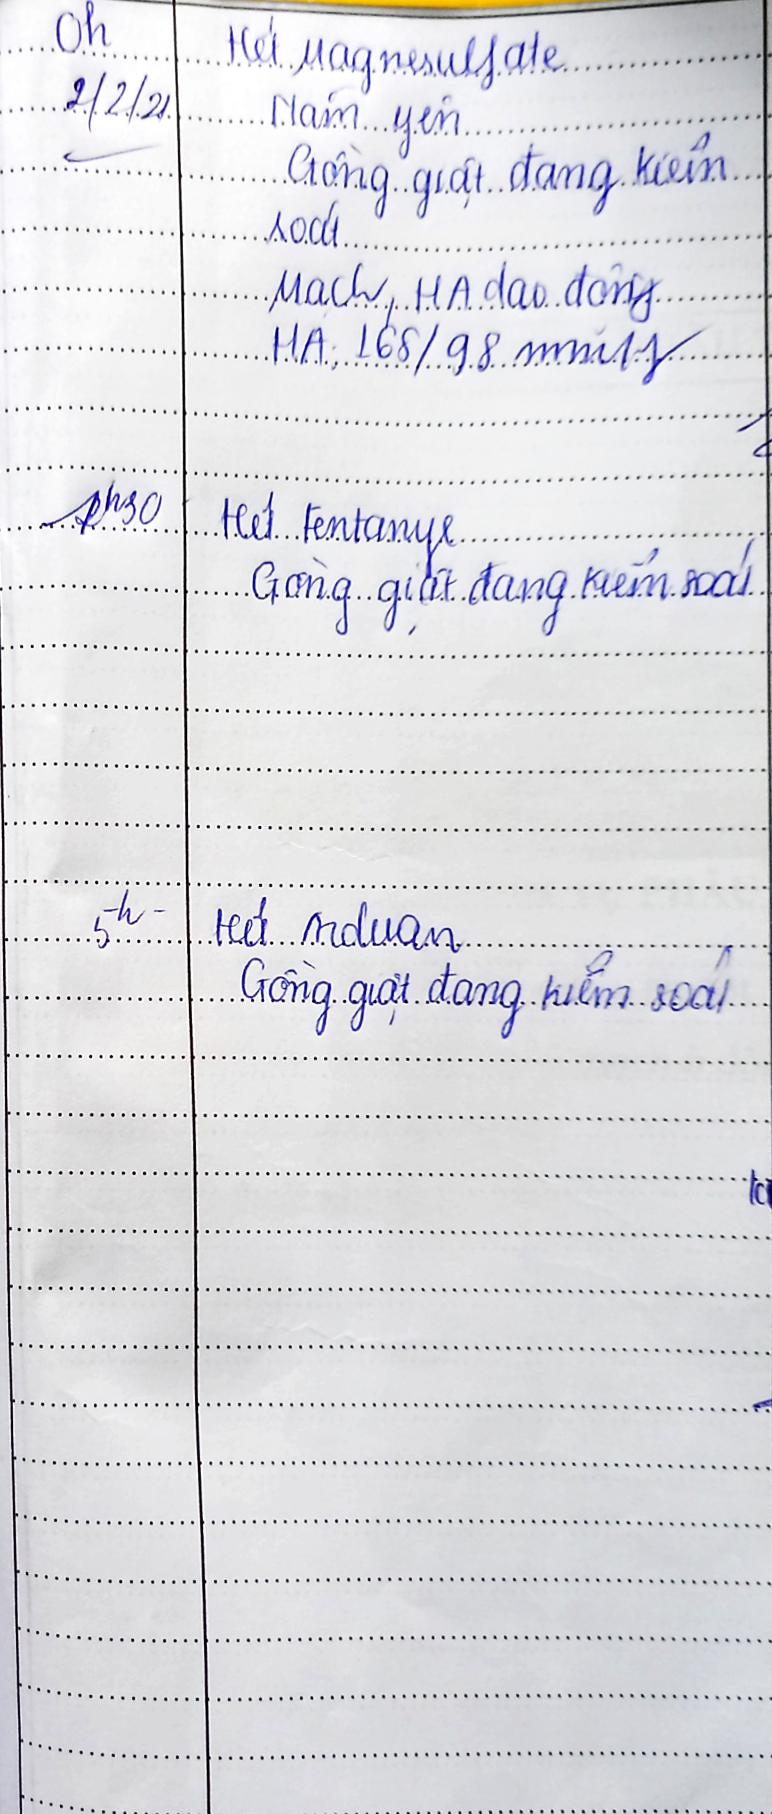 0h Hết Magnesulfate
2/2/21 Nằm yên
Gồng giật đang kiểm
soát
Mạch, HA dao động
HA: 168/98 mmHg
Hết Fentanyl
Gồng giật đang kiểm soát
5h- Hết Arduan
Gồng giật đang kiểm soát